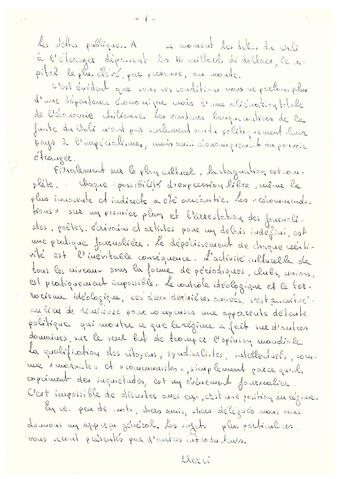 - 4 -
Les dettes publiques. A ce moment les dettes du Chili
à l'étranger dépassent les 10 milliards de dollars, le ca-
pital le plus élevé, par personne, au monde.
C'est évident que sous ces conditions nous ne parlons plus
d'une dépendance économique mais d'une aliénation totale
de l'économie chilienne. Les conduites de la
junte du Chili n'ont pas seulement vendu politiquement leur
pays à l'impérialisme, mais aussi économiquement au pouvoir
étranger.
Finalement sur le plan culturel, la stagnation est com-
plète. Chaque possibilité d'expression libre, même la
plus innocente et indirecte a été anéantie. Les
sur un premier plan et l'arrestation des journalis-
tes, poètes, écrivains et artistes pour un délais indéfini, est
une pratique journalière. Le dépérissement de chaque créati-
vité est l'inévitable conséquence. L'activité culturelle de
tous les niveaux sous la forme de périodiques, clubs, unions,
est pratiquement impossible. Le contrôle idéologique et le ter-
rorisme idéologique, ces deux dernières années, s'est
au lieu de pour compenser une apparente détente
politique qui montre ce que le régime a fait sur d'autres
domaines, sur le seul but de tromper l'opinion mondiale.
La qualification des citoyens, syndicalistes, intellectuels, com-
me «marxistes» et «communistes», simplement parce qu'ils
expriment des inquiétudes, est un évènement journalier.
C'est impossible de discuter avec eux, c'est une position du régime.
En ce peu de mots, chers amis, chers délégués nous vous
donnons un apperçu général. Les sujets plus particuliers
vous seront présentés par d'autres introducteurs.
Merci